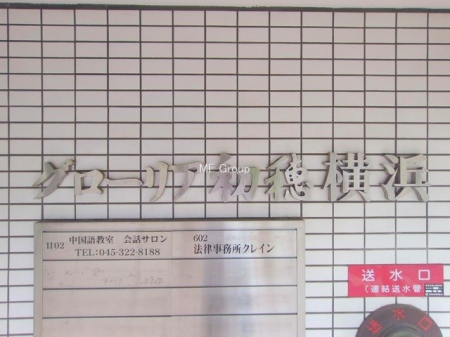 グローリア初穂横浜
ME Group
1102 中国語教室 会話サロン
TEL:045-322-8188
602
法律事務所クレイン
送水口
(連結送水管)
送水口